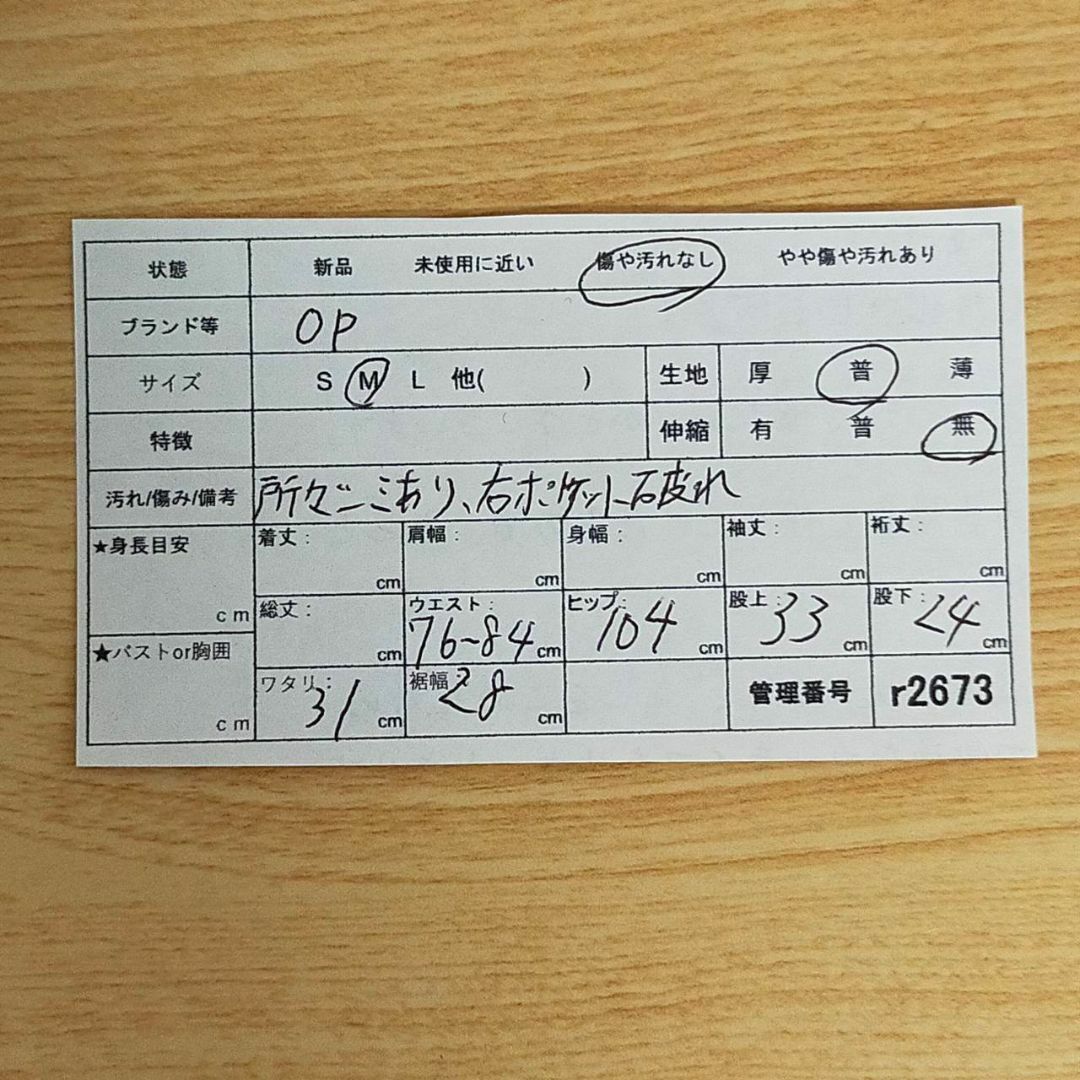 状態 新品 未使用に近い 傷や汚れなし やや傷や汚れあり
ブランド等 OP
サイズ S M L 他( ) 生地 厚 普 薄
特徴 伸縮 有 普 無
汚れ/傷み/備考 所々ゴミあり、右ポケット破れ
★身長目安 cm
着丈: cm 肩幅: cm 身幅: cm 袖丈: cm 裄丈: cm
総丈: cm ウエスト: 76~84 cm ヒップ: 104 cm 股上: 33 cm 股下: 24 cm
★バストor胸囲 cm
ワタリ: 31 cm 裾幅: 28 cm 管理番号 r2673